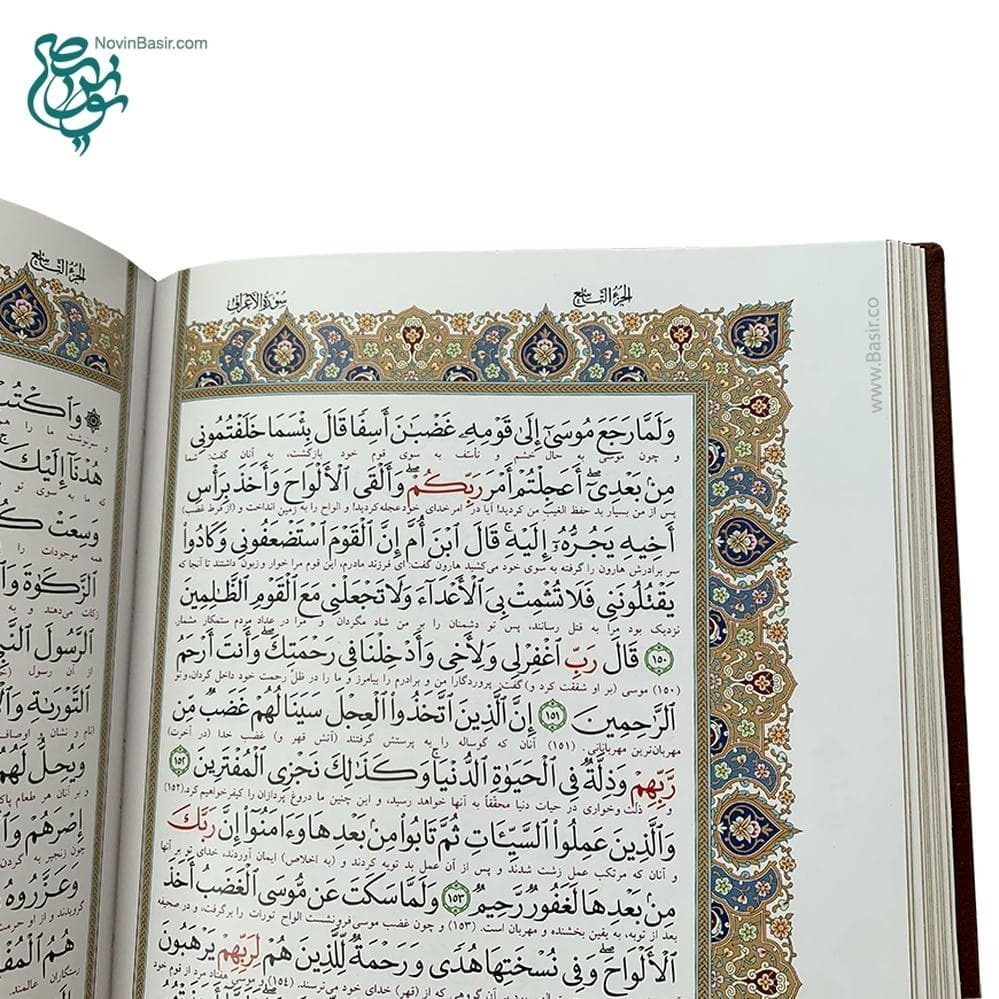 NovinBasir.com
www.Basir.co
الجزء التاسع
سورة الأعراف
الجزء التاسع
وَلَمَّا رَجَعَ مُوسَىٰٓ إِلَىٰ قَوْمِهِۦ غَضْبَٰنَ أَسِفًا قَالَ بِئْسَمَا خَلَفْتُمُونِى
و چون موسی به حال خشم و تأسف به سوی قوم خود بازگشت، به آنان گفت: شما
مِنۢ بَعْدِىٓ ۖ أَعَجِلْتُمْ أَمْرَ رَبِّكُمْ ۖ وَأَلْقَى ٱلْأَلْوَاحَ وَأَخَذَ بِرَأْسِ
پس از من بسیار بد حفظ الغیب من کردید! آیا در امر خدای خود عجله کردید! و الواح را به زمین انداخت و (از فرط غضب)
أَخِيهِ يَجُرُّهُۥٓ إِلَيْهِ ۚ قَالَ ٱبْنَ أُمَّ إِنَّ ٱلْقَوْمَ ٱسْتَضْعَفُونِى وَكَادُوا۟
سر برادرش هارون را گرفته به سوی خود می‌کشید. هارون گفت: ای فرزند مادرم، این قوم مرا خوار و زبون داشتند تا آنجا که
يَقْتُلُونَنِى فَلَا تُشْمِتْ بِىَ ٱلْأَعْدَآءَ وَلَا تَجْعَلْنِى مَعَ ٱلْقَوْمِ ٱلظَّٰلِمِينَ
نزدیک بود مرا به قتل رسانند، پس تو دشمنان را بر من شاد مگردان و مرا در عداد مردم ستمکار مشمار
﴿١٥٠﴾ قَالَ رَبِّ ٱغْفِرْ لِى وَلِأَخِى وَأَدْخِلْنَا فِى رَحْمَتِكَ ۖ وَأَنتَ أَرْحَمُ
(۱۵۰) موسی (بر او شفقت کرد و) گفت: پروردگارا من و برادرم را بیامرز و ما را در ظلّ رحمت خود داخل گردان، و تو
ٱلرَّٰحِمِينَ ﴿١٥١﴾ إِنَّ ٱلَّذِينَ ٱتَّخَذُوا۟ ٱلْعِجْلَ سَيَنَالُهُمْ غَضَبٌ مِّن
مهربان‌ترین مهربانانی. (۱۵۱) آنان که گوساله را به پرستش گرفتند (آتش قهر و) غضب خدا (در آخرت)
رَّبِّهِمْ وَذِلَّةٌ فِى ٱلْحَيَوٰةِ ٱلدُّنْيَا ۚ وَكَذَٰلِكَ نَجْزِى ٱلْمُفْتَرِينَ ﴿١٥٢﴾
و ذلت و خواری در حیات دنیا محققاً به آنها خواهد رسید، و این چنین ما دروغ پردازان را کیفر خواهیم کرد. (۱۵۲)
وَٱلَّذِينَ عَمِلُوا۟ ٱلسَّيِّـَٔاتِ ثُمَّ تَابُوا۟ مِنۢ بَعْدِهَا وَءَامَنُوٓا۟ إِنَّ رَبَّكَ
و آنان که مرتکب عمل زشت شدند و پس از آن عمل بد توبه کردند و (به اخلاص) ایمان آوردند، خدای تو بر آنها
مِنۢ بَعْدِهَا لَغَفُورٌ رَّحِيمٌ ﴿١٥٣﴾ وَلَمَّا سَكَتَ عَن مُّوسَى ٱلْغَضَبُ أَخَذَ
بعد از توبه، به یقین بخشنده و مهربان است. (۱۵۳) و چون غضب موسی فرونشست الواح تورات را برگرفت، و در صحیفه
ٱلْأَلْوَاحَ ۖ وَفِى نُسْخَتِهَا هُدًى وَرَحْمَةٌ لِّلَّذِينَ هُمْ لِرَبِّهِمْ يَرْهَبُونَ
آن گروهی که از (قهر) خدای خود می‌ترسند. (۱۵۴) و موسی هفتاد مرد از قوم خود
وَٱكْتُبْ
سرنوشت ما را هم
هُدْنَآ إِلَيْكَ
که ما به سوی تو
وَسِعَتْ
همه موجودات را
ٱلزَّكَوٰةَ
زکات می‌دهند و به
ٱلرَّسُولَ
از آن رسول
ٱلتَّوْرَىٰةِ
نام و نشان و اوصاف
وَيُحِلُّ لَهُمُ
و بر آنان هر طعام
إِصْرَهُمْ
چون زنجیر به گردن
وَعَزَّرُوهُ
گرویدند و از او حرمت
هُمُ
رستگاران عالمند.